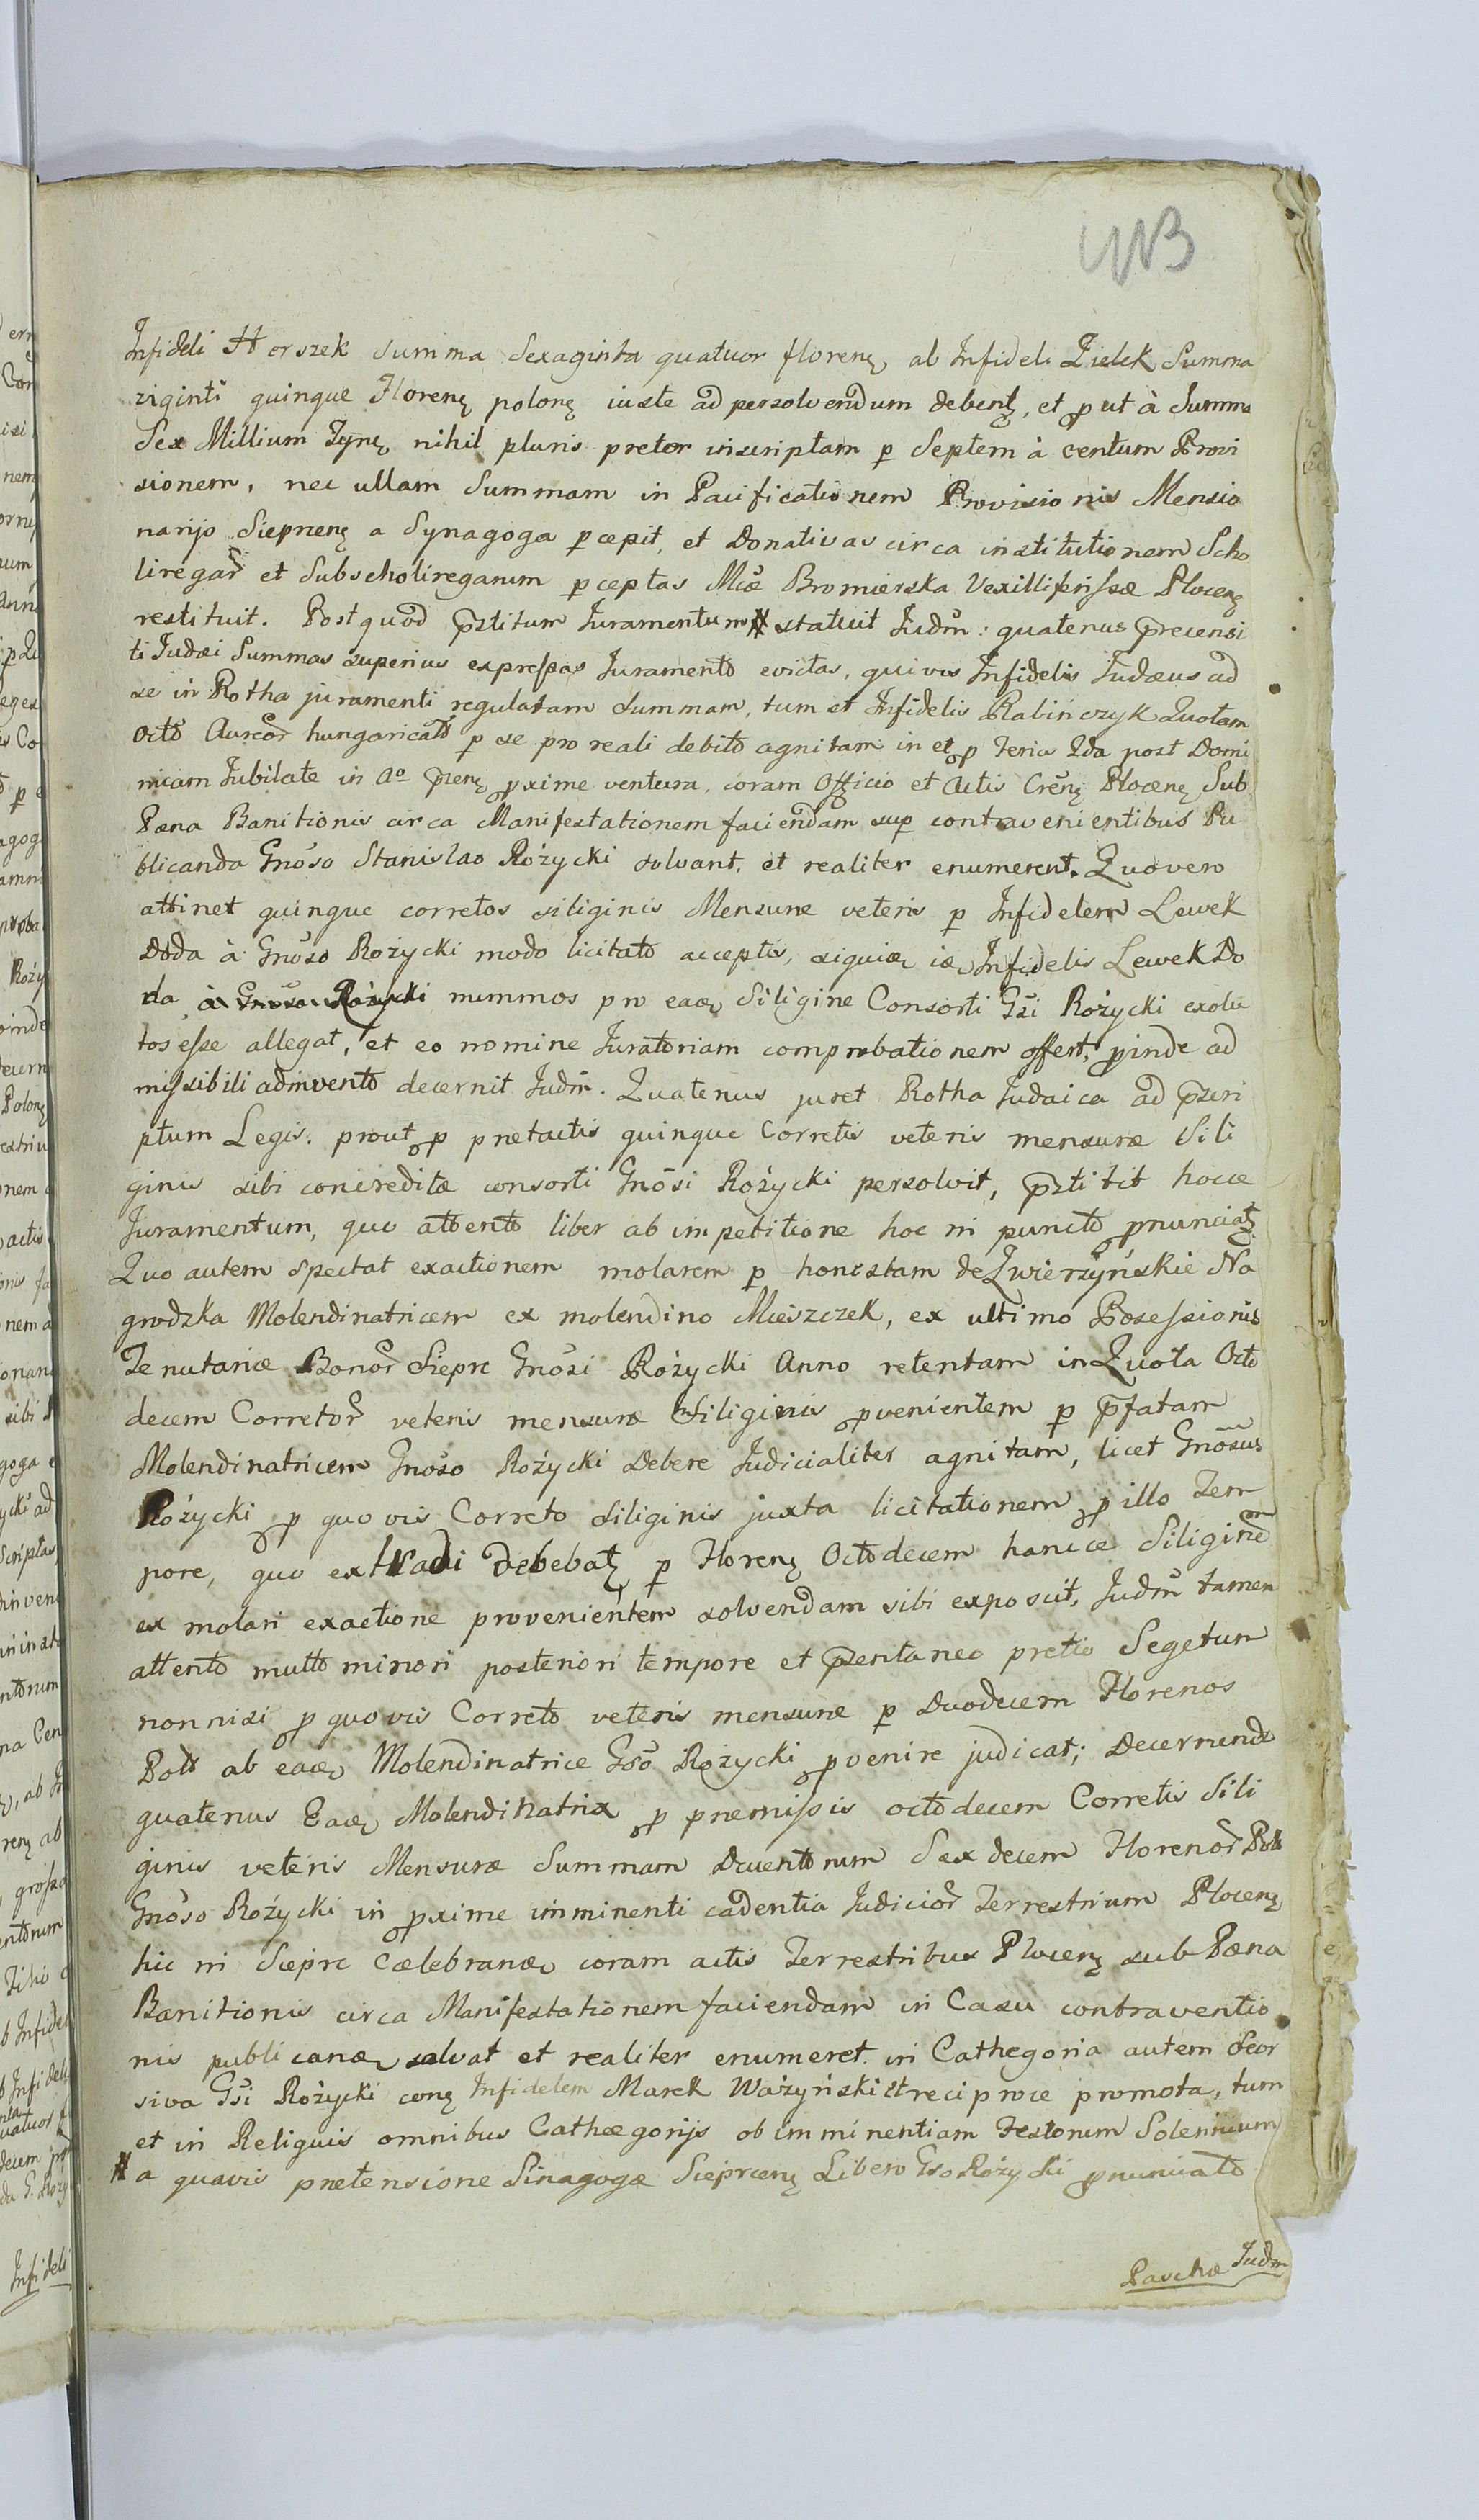 Infideli Herszek summa Sexaginta quatuor floren, ab Infideli Zielek Summa
viginti quinque Floren polon iuste ad persolvendum debent, et put à Summa
Sex Millium Tyn nihil pluris preter inscriptam p Septem à centum Provi
sionem, nec ullam Summam in Pacificationem Provisionis Mensio
narijs Sieprcen a Synagoga pcepit, et Donativas circa institutionem Scho
liregar et Subscholireganum pceptas Mcae Bromierska Vexilliferissae Plocen
restituit. Post quod pstitum Juramentum # statuit Judm: quatenus precensi
ti Judaei Summas superius expressas Juramento evictas, quivis Infidelis Judaeus ad
se in Rotha juramenti regulatam summam, tum et Infidelis Rabinczyk Quotam
octo Aureor hungaricalo p se pro reali debito agnitam in et p Feria 2da post Domi
nicam Jubilate in Ao pren pxime ventura, coram Officio et Actis Cren Plocen Sub
Paena Banitionis circa Manifestationem faciendam sup contravenientibus Pu
blicanda Gnoso Stanislao Różycki solvant, et realiter enumerent. Quo vero
attinet quinque corretos siliginis Mensurae veteris p Infidelem Lewek
Doda à Gnoso Rożycki modo licitato acceptis, siquid is Infidelis Lewek Do
da à Gnoso Różycki nummos pro ead Siligine Consorti Gsi Różycki exolu
tos esse allegat, et eo nomine Juratoriam comprobationem offert, pinde ad
missibili adinvento decernit Judm. Quatenus juret Rotha Judaica ad pscri
ptum Legis. prout p praetactis quinque Corretis veteris mensurae Sili
ginis sibi concreditae consorti Gnosi Różycki persolvit, pstitit hocce
Juramentum, quo attento liber ab impetitione hoc in puncto pnunciat
Quo autem spectat exactionem molarem p honestam de Zwierzynskie Na
grodzka Molendinatricem ex molendino Mieszczek, ex ultimo Possessionis
Tenutariae Bonor Sieprc Gnosi Różycki Anno retentam in Quota Octo
decem Corretor veteris mensurae Siliginis pvenientem p pfatam
Molendinatricem Gnoso Różycki Debere Judicialiter agnitam, licet Gnosus
Różycki p quovis Correto siliginis juxta licitationem p illo Tem
pore, quo extradi debebat p Floren Octodecem hancce Siliginem
ex molari exactione provenientem solvendam sibi exposcit, Judm tamen
attento multo minori posteriori tempore et psentaneo pretio Segetum
non nisi p quovis Correto veteris mensurae p Duodecem Florenos
Pold ab ead Molendinatrice Gso Różycki pvenire judicat; Decernendo
quatenus Ead Molendinatrix p praemissis octodecem Corretis Sili
ginis veteris Mensurae Summam Ducentorum Sexdecem Florenor Poll
Gnoso Różycki in pxime imminenti cadentia Judicior Terrestrium Plocen
hic in Sieprc Caelebrand coram actis Terrestribus Plocen sub Paena
Banitionis circa Manifestationem faciendam in Casu contraventio
nis publicand solvat et realiter enumeret. in Cathegoria autem Seor
siva Gsi Różycki con Infidelem Marek Ważyński et reciproce promota, tum
et in Reliquis omnibus Cathaegorijs ob imminentiam Festorum Solennium
# a quavis praetensione Sinagogae Sieprcen Libero Gso Różycki pnunciato
Paschae Judm